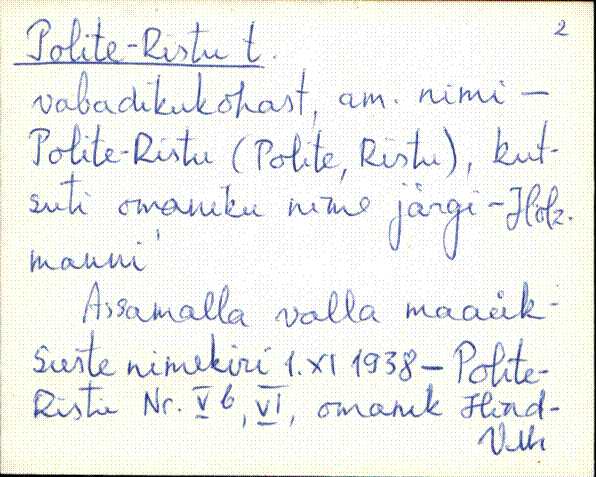 2
Polite-Ristu t.
vabadikukohast, am. nimi –
Polite-Ristu (Polite, Ristu), kut-
suti omaniku nime järgi – Holz-
manni
Assamalla valla maaük-
suste nimekiri 1.XI 1938 – Polite-
Ristu Nr. V b, VI, omanik Hind-